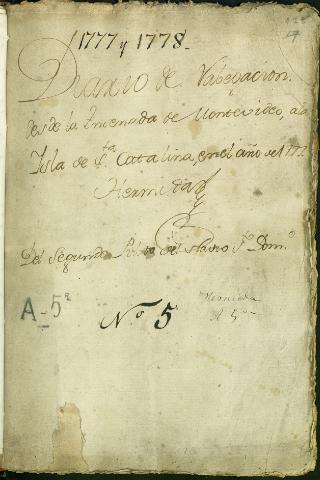 1777 y 1778.
Diario de Navegacion.
desde la Ensenada de Montevideo, a la
Isla de S.ta Catalina, en el año de 177
Hermida
Del Segundo Piloto del Navio S.to Dom.o
A-5ª
Nº 5
Hermida
A 5ª